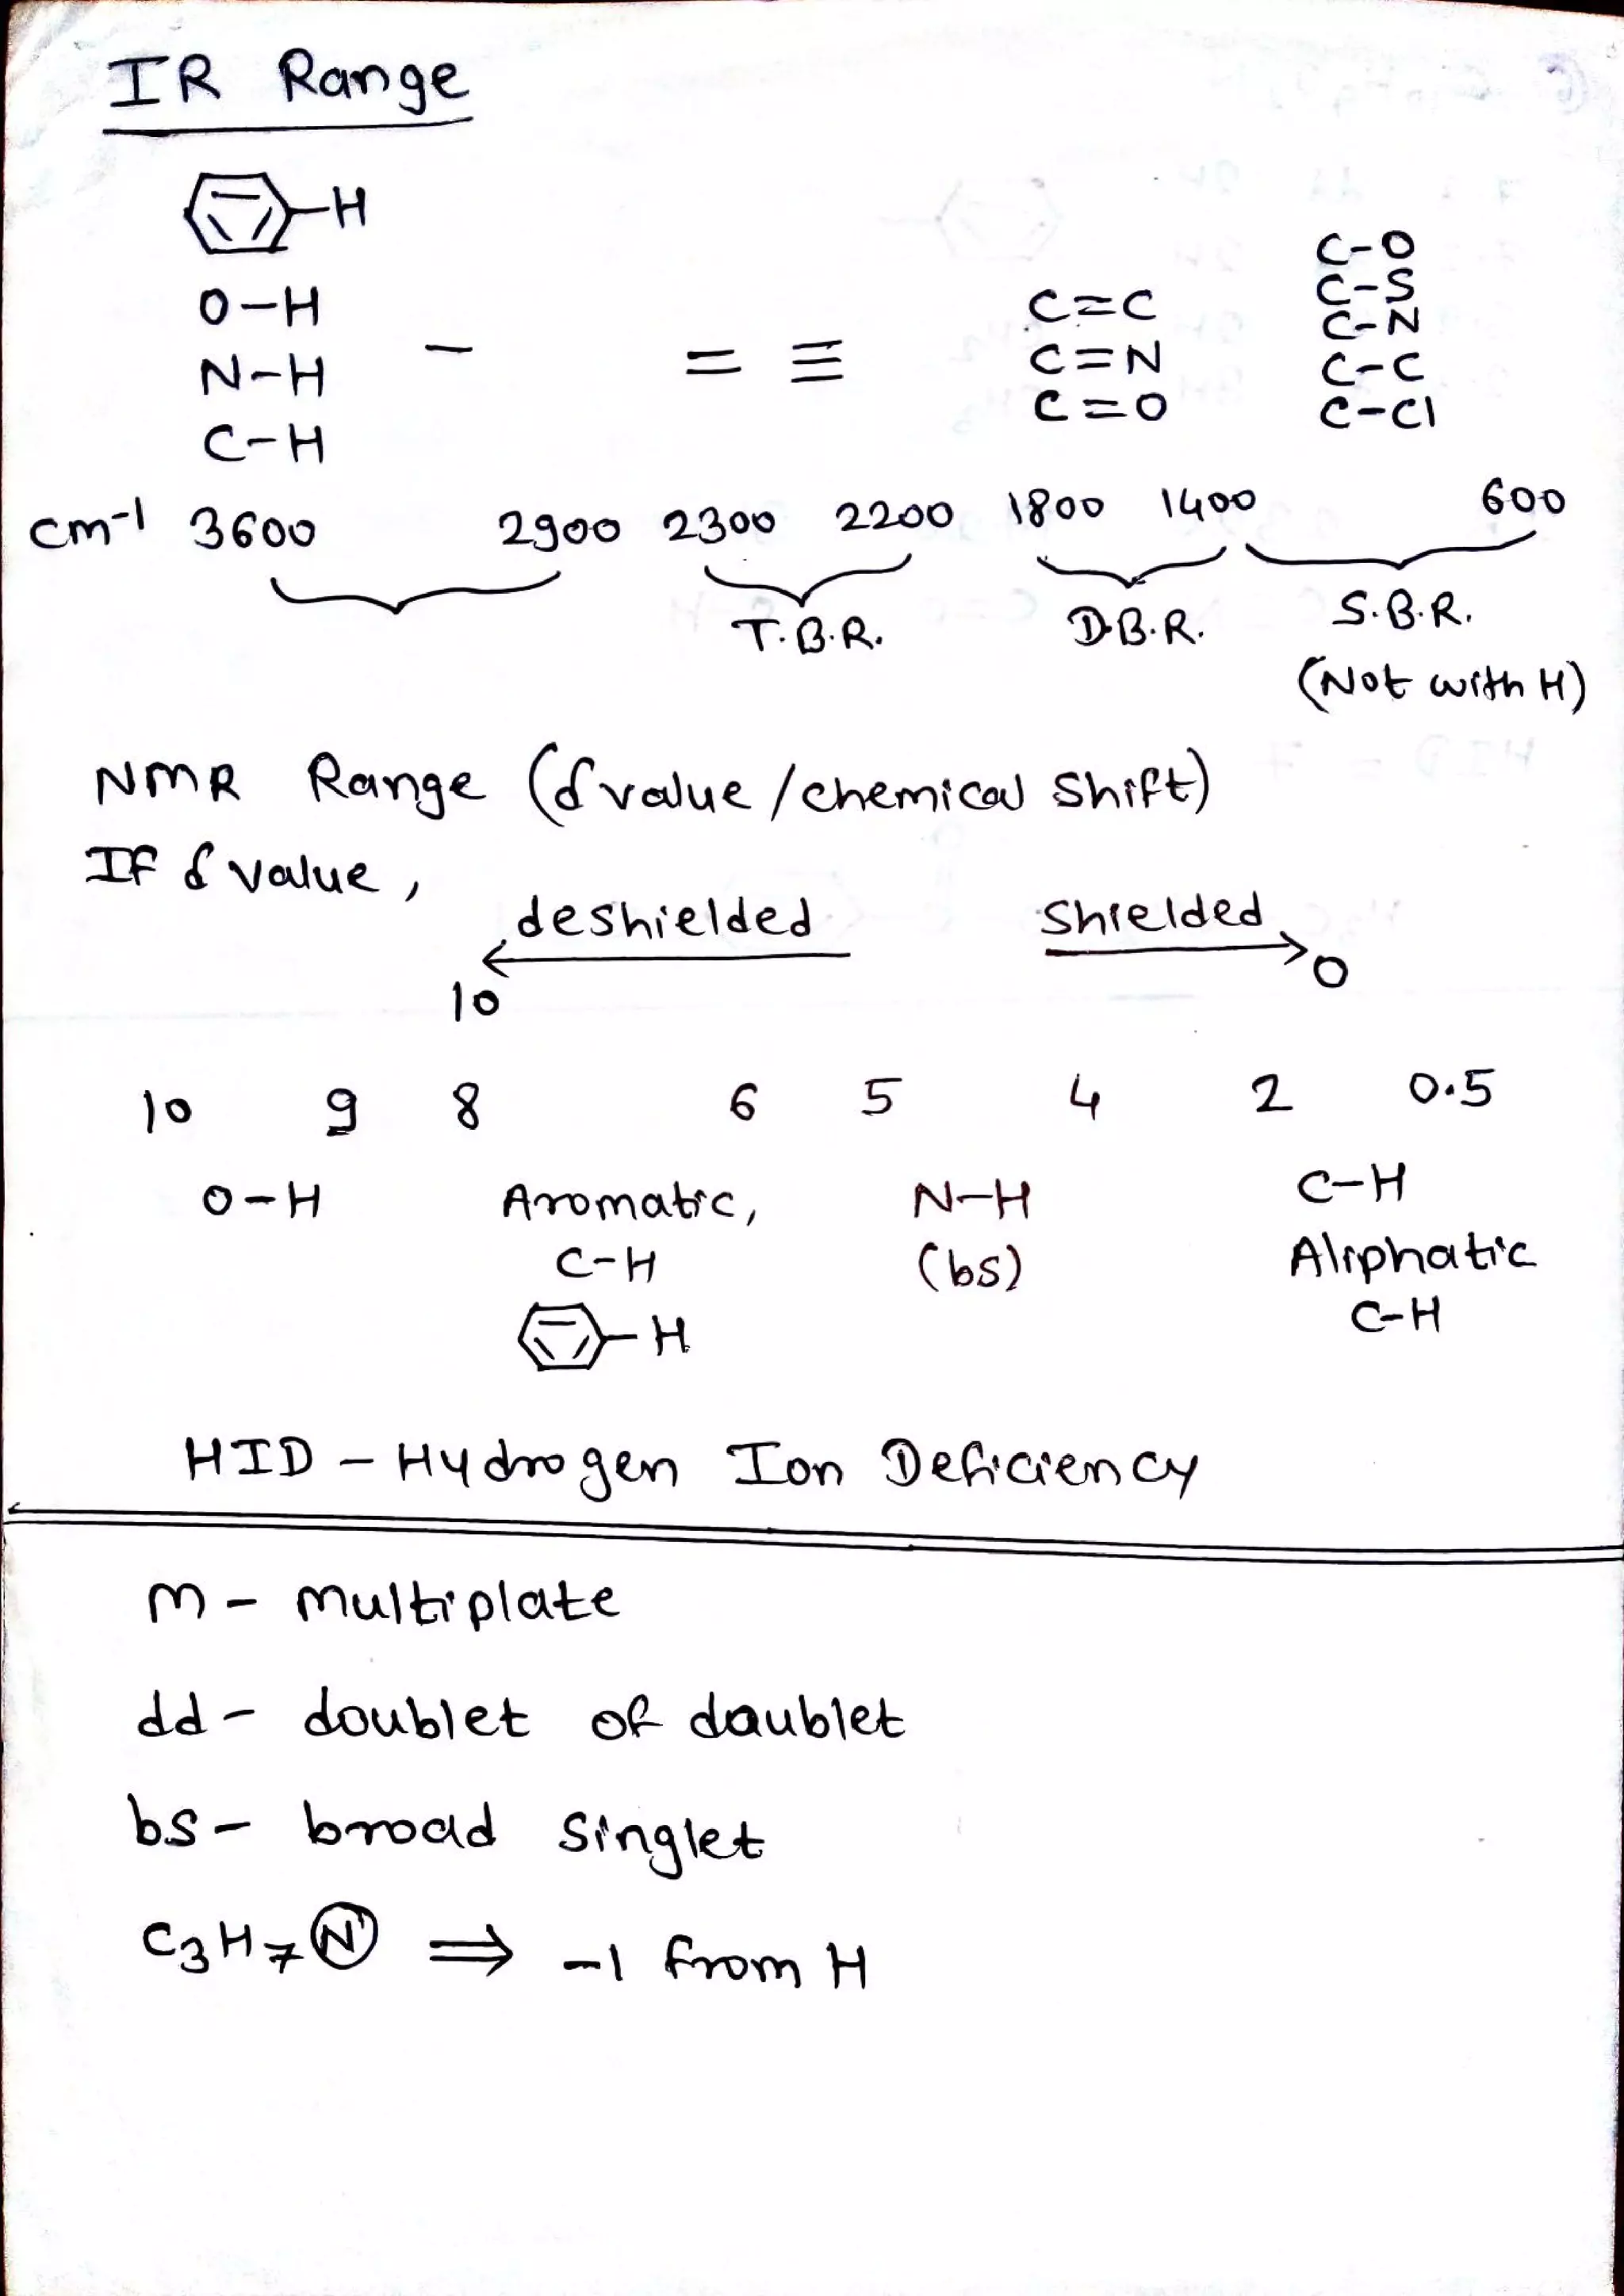 IR Range
-H
O-H
N-H
C-H
- = ≡
C=C
C=N
C=O
C-O
C-S
C-N
C-C
C-Cl
cm-1 3600 2900 2300 2200 1800 1400 600
T.B.R. D.B.R. S.B.R.
(Not with H)
NMR Range (δ value / chemical shift)
If δ value,
deshielded shielded
10 0
10 9 8 6 5 4 2 0.5
O-H Aromatic, N-H C-H
C-H (bs) Aliphatic
-H C-H
HID - Hydrogen Ion Deficiency
m - multiplate
dd - doublet of daublet
bs - broad singlet
C3H7N ⇒ -1 from H